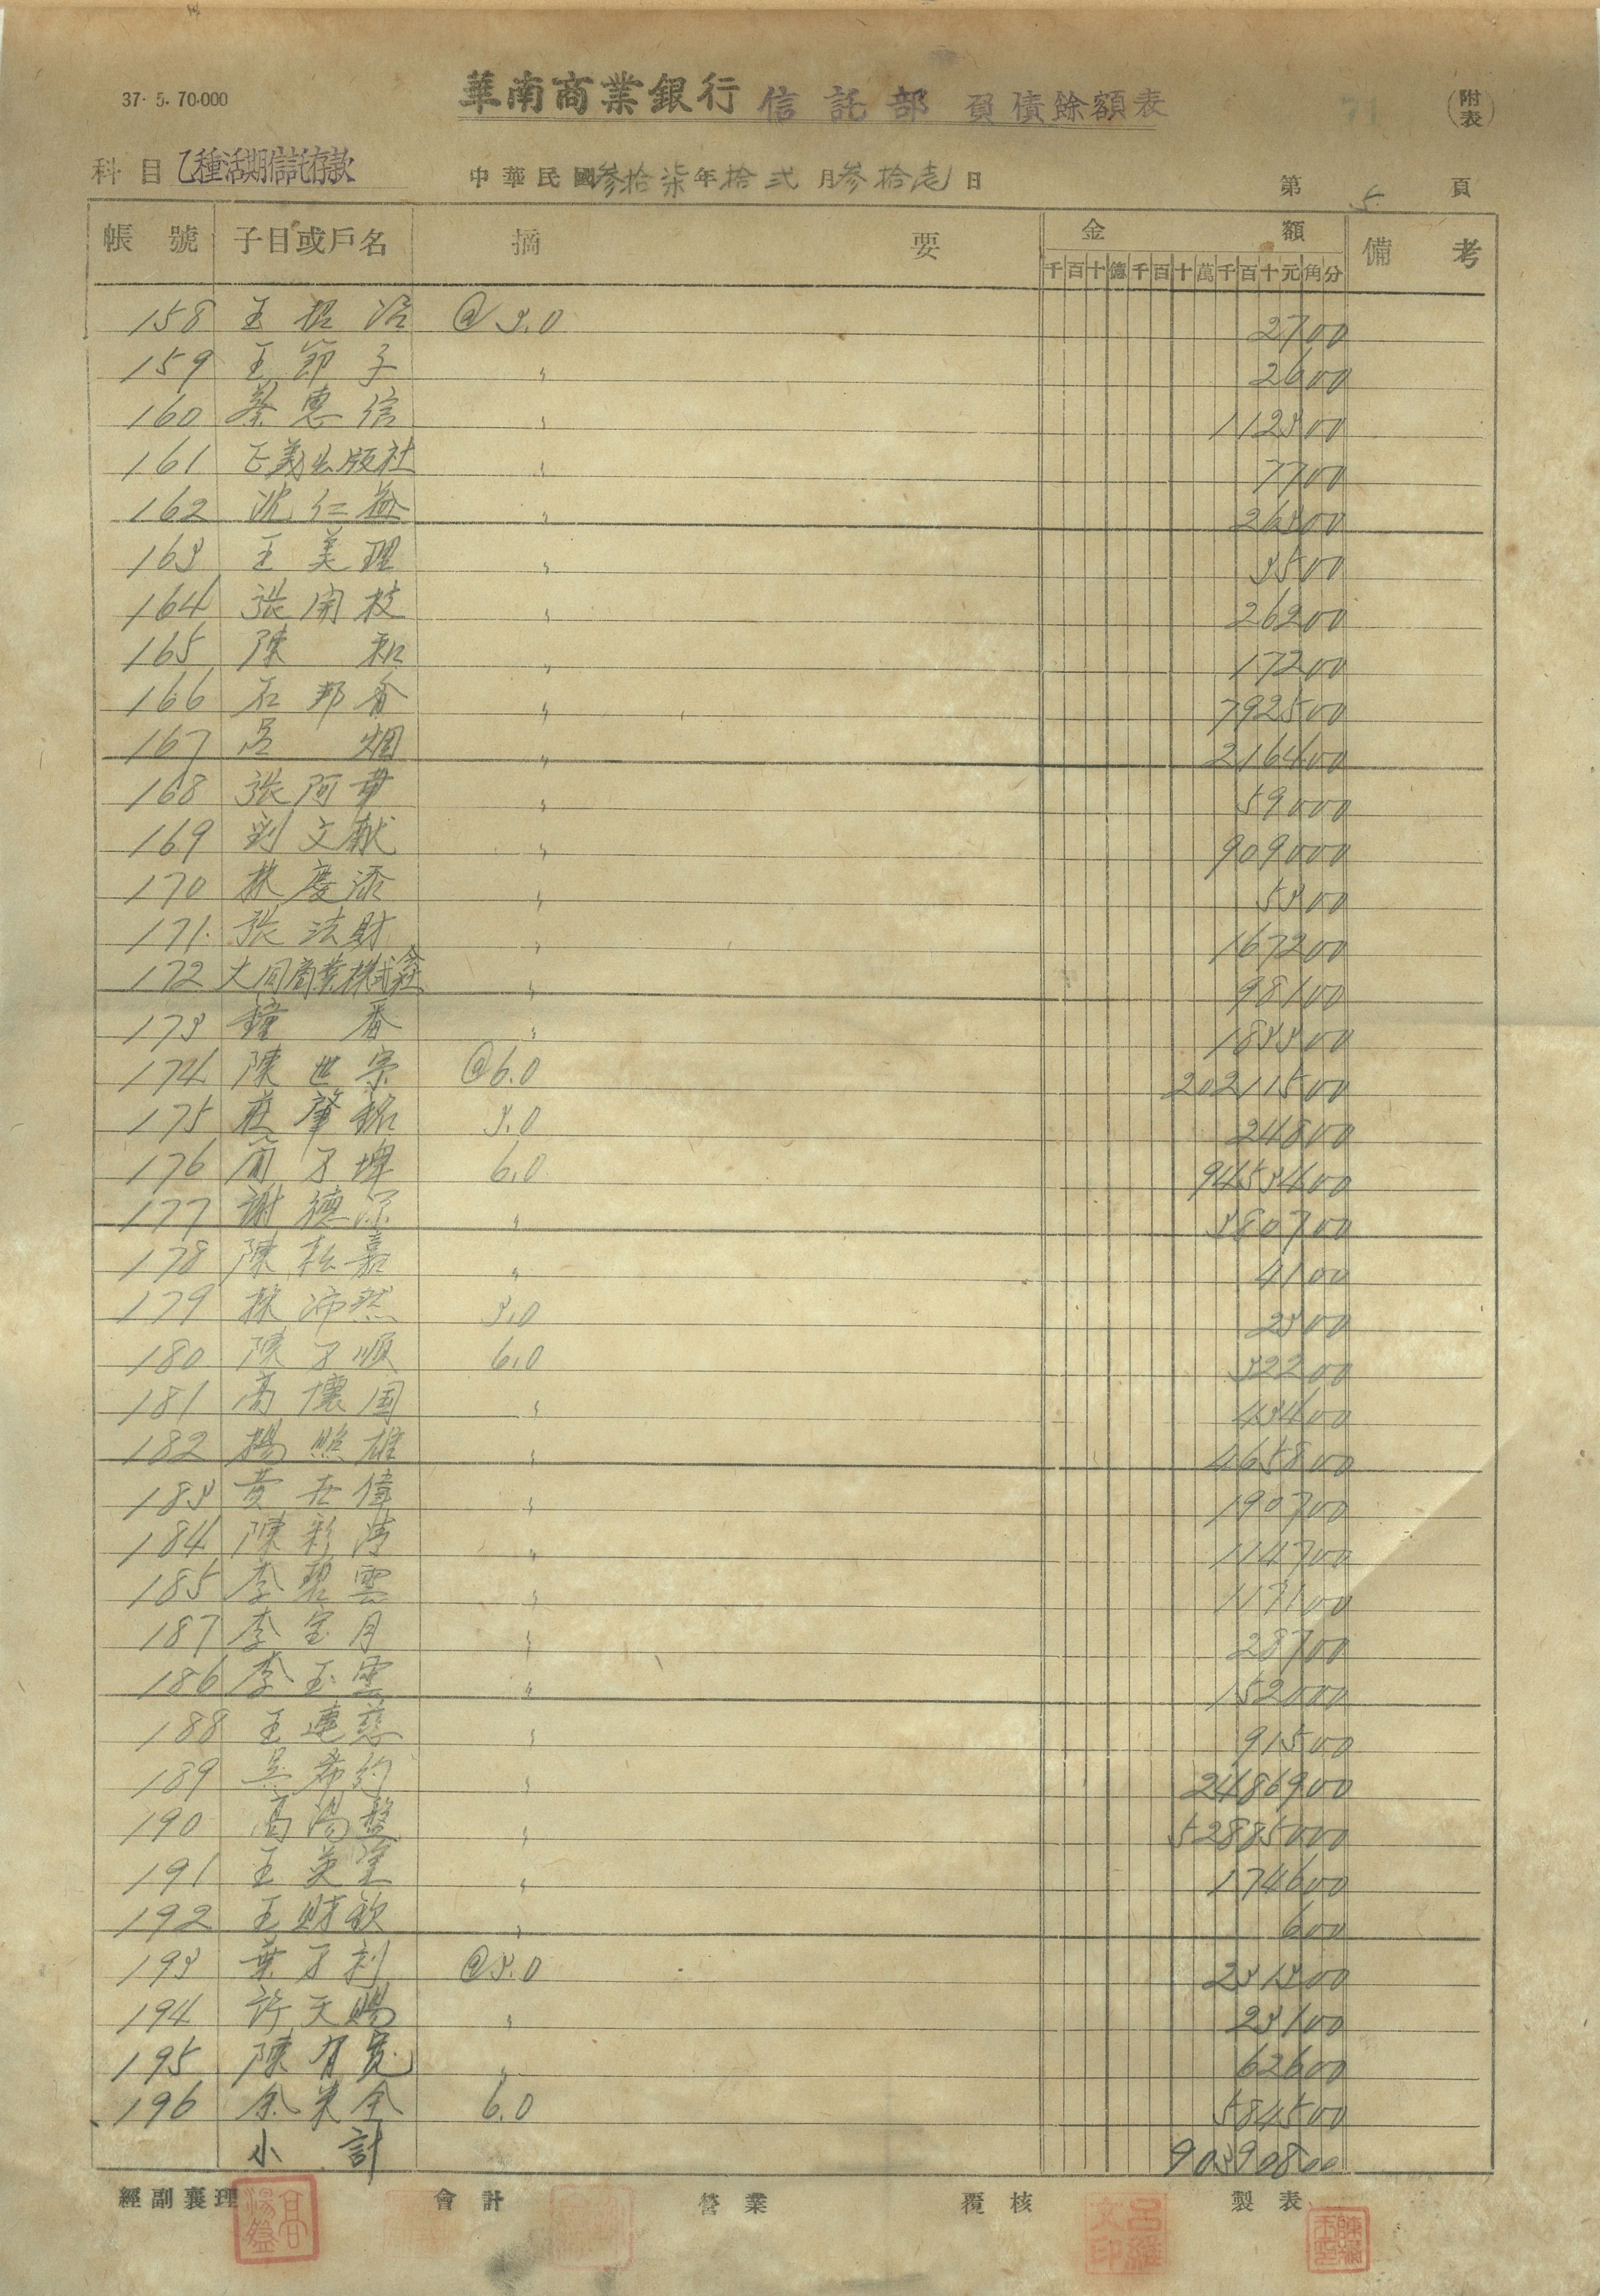 37. 5. 70.000
華南商業銀行 信託部 負債餘額表
(附表)
71
科目 乙種活期信託存款 中華民國參拾柒年拾弍月參拾壱日 第5頁
帳號 子目或戶名 摘要 金額 備考
千百十億千百十萬千百十元角分
158 王 @3.0 2700
159 王節子 〃 2600
160 蔡惠信 〃 112300
161 正義出版社 〃 7700
162 沈仁益 〃 26300
163 王美理 〃 3500
164 張開枝 〃 26200
165 陳和 〃 17200
166 石邦香 〃 792500
167 呂烟 〃 216400
168 張阿華 〃 59000
169 劉文献 〃 909000
170 林慶添 〃 5300
171 張法財 〃 167200
172 大同商業株式会社 〃 98100
173 鐘番 〃 183300
174 陳世宗 @6.0 20211500
175 莊肇銘 3.0 24800
176 簡才 6.0 9453400
177 謝德深 〃 380700
178 陳松嘉 〃 4100
179 林沛然 3.0 2300
180 陳才順 6.0 32200
181 高懷国 〃 43400
182 楊照雄 〃 465800
183 黃在偉 〃 190700
184 陳彩清 〃 114700
185 李碧雲 〃 117100
187 李宝月 〃 28700
186 李玉雲 〃 152000
188 王連慈 〃 91500
189 吳希約 〃 2486900
190 高湯盤 〃 52885000
191 王英 〃 174600
192 王財欽 〃 600
193 葉才利 @3.0 231300
194 許天賜 〃 23100
195 陳有寬 〃 62600
196 余東全 6.0 584500
小計 90390800
經副襄理 會計 營業 覆核 製表
高湯盤
呂維文印